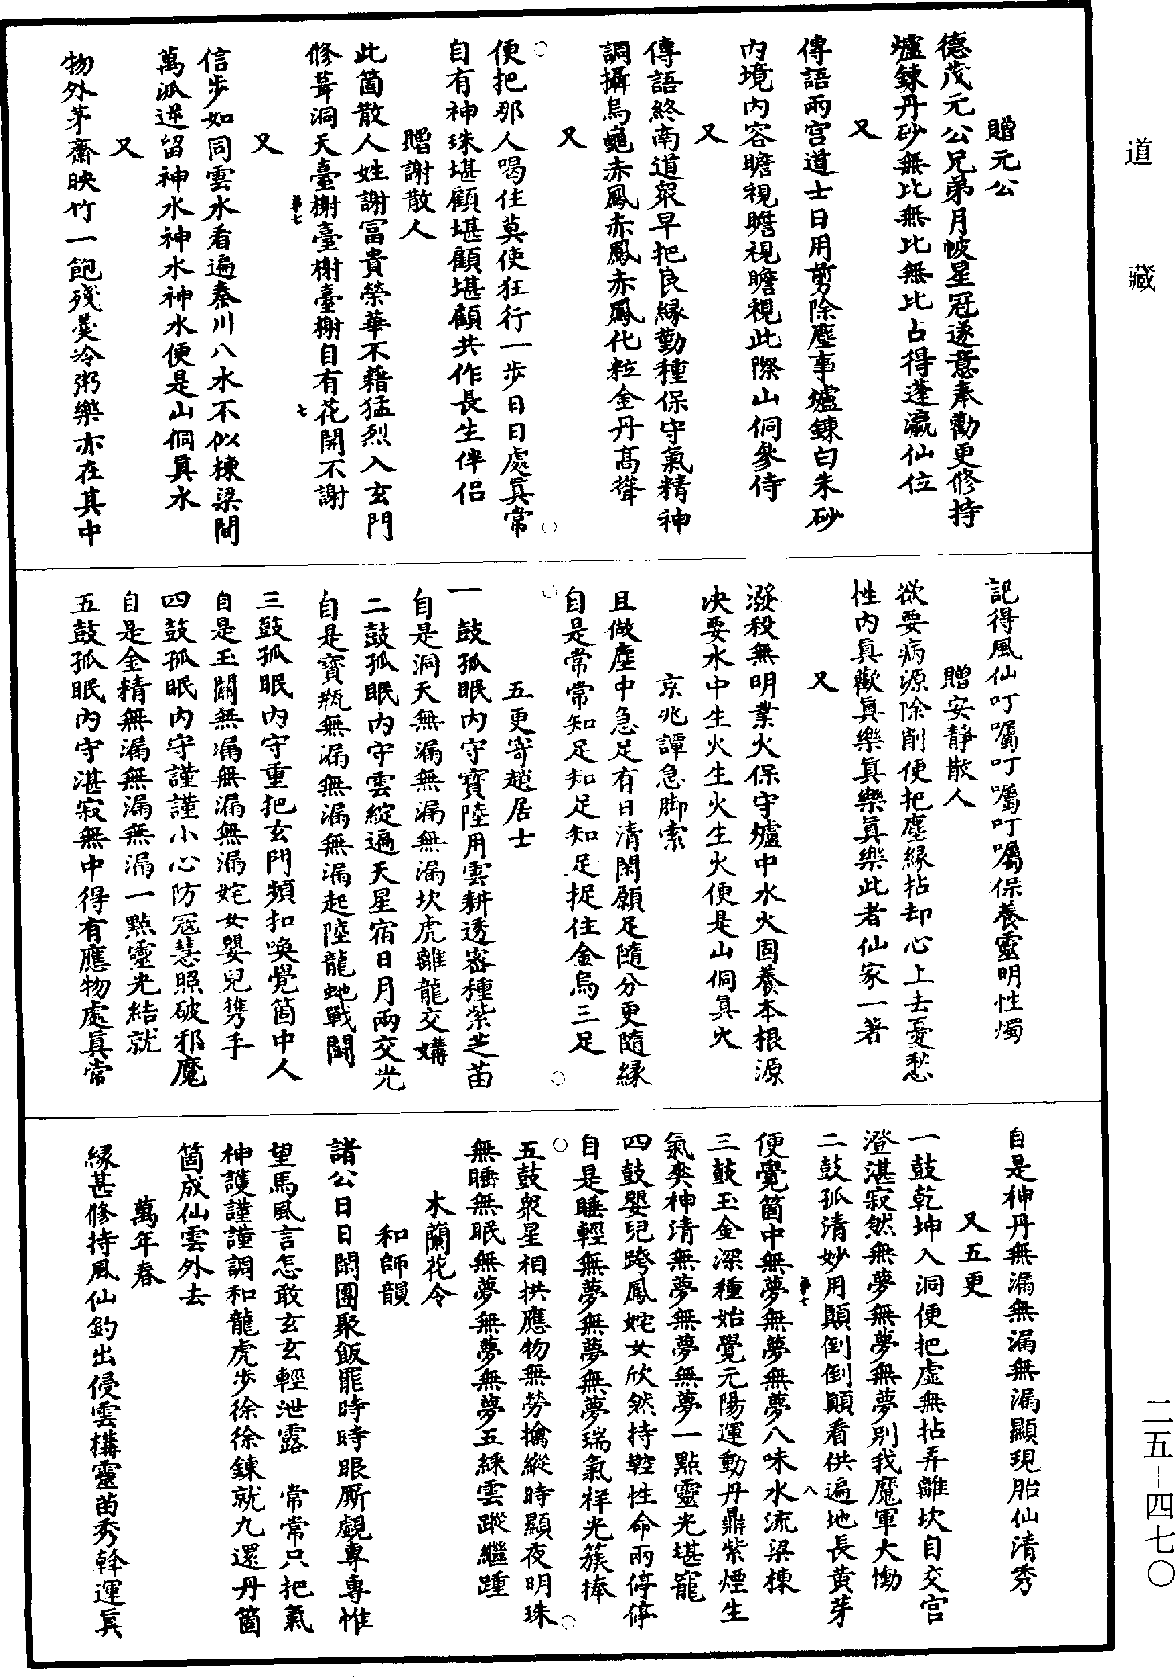 道藏
二五—四七〇
贈元公
德茂元公兄弟月帔星冠遂意奉勸更修持
爐鍊丹砂無比無比無比占得蓬瀛仙位
又
傳語兩宮道士日用剪除塵事爐鍊白朱砂
內境內容瞻視瞻視瞻視此際山侗參侍
又
傳語終南道眾早把良緣勤種保守氣精神
調攝烏龜赤鳳赤鳳赤鳳化粒金丹高聳
又
便把那人喝住莫使狂行一步日日處真常
自有神珠堪顧堪顧堪顧共作長生伴侶
贈謝散人
此箇散人姓謝富貴榮華不藉猛烈入玄門
修葺洞天臺榭臺榭臺榭自有花開不謝
又
信步如同雲水看遍秦川八水不似棟梁間
萬派逆留神水神水神水便是山侗真水
又
物外茅齋映竹一飽殘羹冷粥樂亦在其中
記得風仙叮囑叮囑叮囑保養靈明性燭
贈安靜散人
欲要病源除削便把塵緣拈却心上去憂愁
性內真歡真樂真樂真樂此者仙家一著
又
潑殺無明業火保守爐中水火固養本根源
決要水中生火生火生火便是山侗真火
京兆譚急腳索
且做塵中急足有日清閑願足隨分更隨緣
自是常常知足知足知足捉住金烏三足
五更寄趙居士
一鼓孤眠內守寶陸用雲耕透密種紫芝苗
自是洞天無漏無漏無漏坎虎離龍交媾
二鼓孤眠內守雲綻遍天星宿日月兩交光
自是寶瓶無漏無漏無漏起陸龍虵戰鬬
三鼓孤眠內守重把玄門頻扣喚覺箇中人
自是玉關無漏無漏無漏姹女嬰兒携手
四鼓孤眠內守謹謹小心防寇慧照破邪魔
自是金精無漏無漏無漏一點靈光結就
五鼓孤眠內守湛寂無中得有應物處真常
自是神丹無漏無漏無漏顯現胎仙清秀
又五更
一鼓乾坤入洞便把虛無拈弄離坎自交宮
澄湛寂然無夢無夢無夢別我魔軍大慟
二鼓孤清妙用顛倒倒顛看供遍地長黃芽
便覺箇中無夢無夢無夢八味水流梁棟
三鼓玉金深種始覺元陽運動丹鼎紫煙生
氣爽神清無夢無夢無夢一點靈光堪寵
四鼓嬰兒跨鳳姹女欣然持鞚性命兩停停
自是睡輕無夢無夢無夢瑞氣祥光簇捧
五鼓眾星相拱應物無勞擒縱時顯夜明珠
無睡無眠無夢無夢無夢五綵雲蹤繼踵
木蘭花令
和師韻
諸公日日閑團聚飯罷時時眼厮覷專專惟
望馬風言怎敢玄玄輕泄露　常常只把氣
神護謹謹調和龍虎步徐徐鍊就九還丹箇
箇成仙雲外去
萬年春
緣甚修持風仙釣出侵雲構靈苗秀幹運真